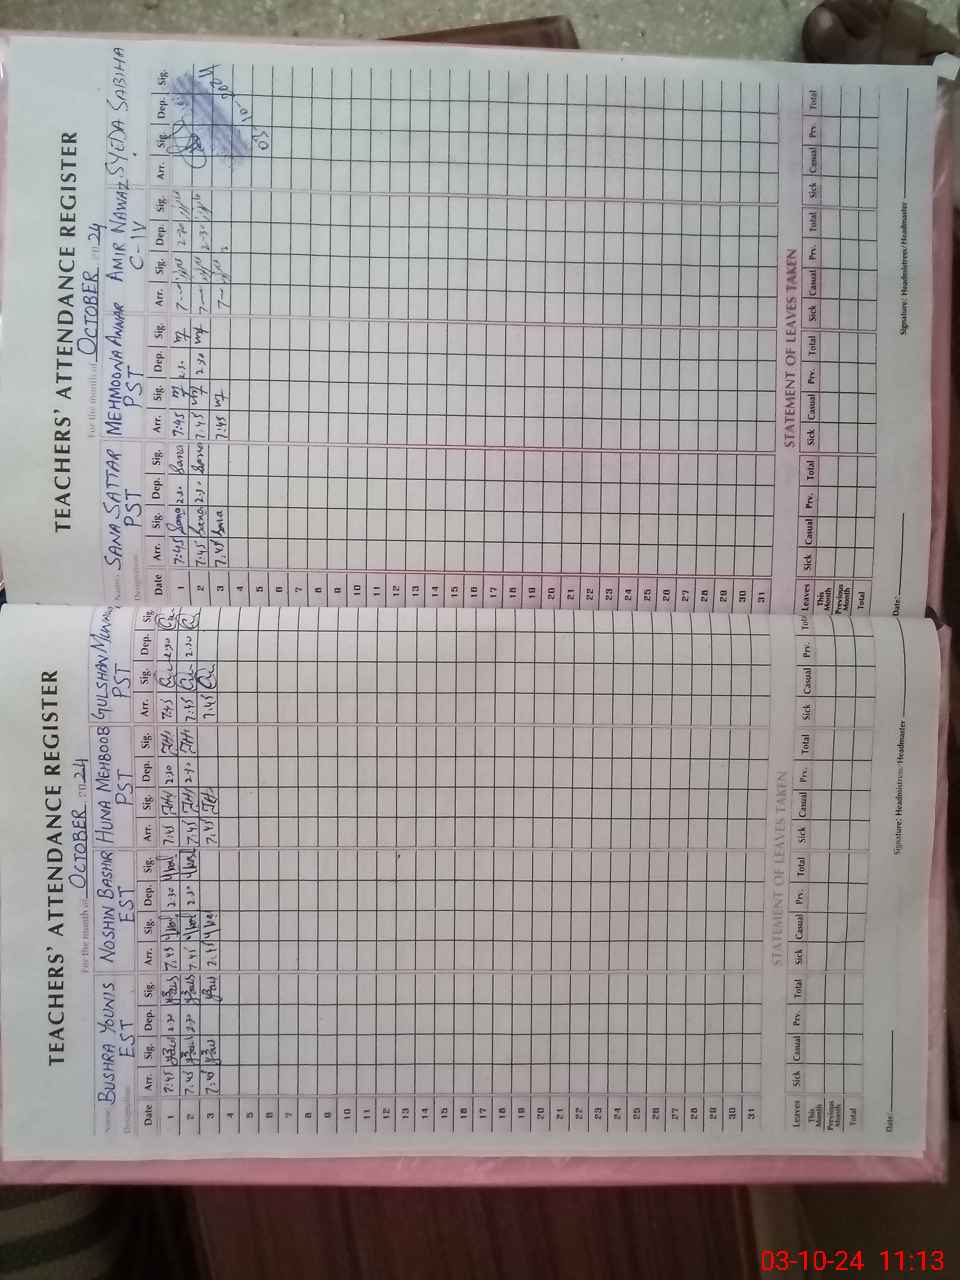 TEACHERS' ATTENDANCE REGISTER
For the month of OCTOBER 2024
Name: BUSHRA YOUNIS NOSHIN BASHIR HUNA MEHBOOB GULSHAN
Designation: EST EST PST PST
Date Arr. Sig. Dep. Sig. Arr. Sig. Dep. Sig. Arr. Sig. Dep. Sig. Arr. Sig. Dep. Sig.
1 7:45 2:30 7:45 2:30 7:45 2:30 7:45 2:30
2 7:45 2:30 7:45 2:30 7:45 2:30 7:45 2:30
3 7:45 7:45 7:45 7:45
4
5
6
7
8
9
10
11
12
13
14
15
16
17
18
19
20
21
22
23
24
25
26
27
28
29
30
31
STATEMENT OF LEAVES TAKEN
Leaves Sick Casual Prv. Total Sick Casual Prv. Total Sick Casual Prv. Total Sick Casual Prv. Total
This Month
Previous Month
Total
Date: Signature: Headmistress/Headmaster
TEACHERS' ATTENDANCE REGISTER
For the month of OCTOBER 2024
Name: SANA SATTAR MEHMOONA ANWAR AMIR NAWAZ SYEDA SABIHA
Designation: PST PST C-IV
Date Arr. Sig. Dep. Sig. Arr. Sig. Dep. Sig. Arr. Sig. Dep. Sig. Arr. Sig. Dep. Sig.
1 7:45 Sana 2:30 Sana 7:45 2:30 7 2:30
2 7:45 Sana 2:30 Sana 7:45 2:30 7 2:30
3 7:45 Sana 7:45 7
03-10-2024
4
5
6
7
8
9
10
11
12
13
14
15
16
17
18
19
20
21
22
23
24
25
26
27
28
29
30
31
STATEMENT OF LEAVES TAKEN
Leaves Sick Casual Prv. Total Sick Casual Prv. Total Sick Casual Prv. Total Sick Casual Prv. Total
This Month
Previous Month
Total
Date: Signature: Headmistress/Headmaster
03-10-24 11:13